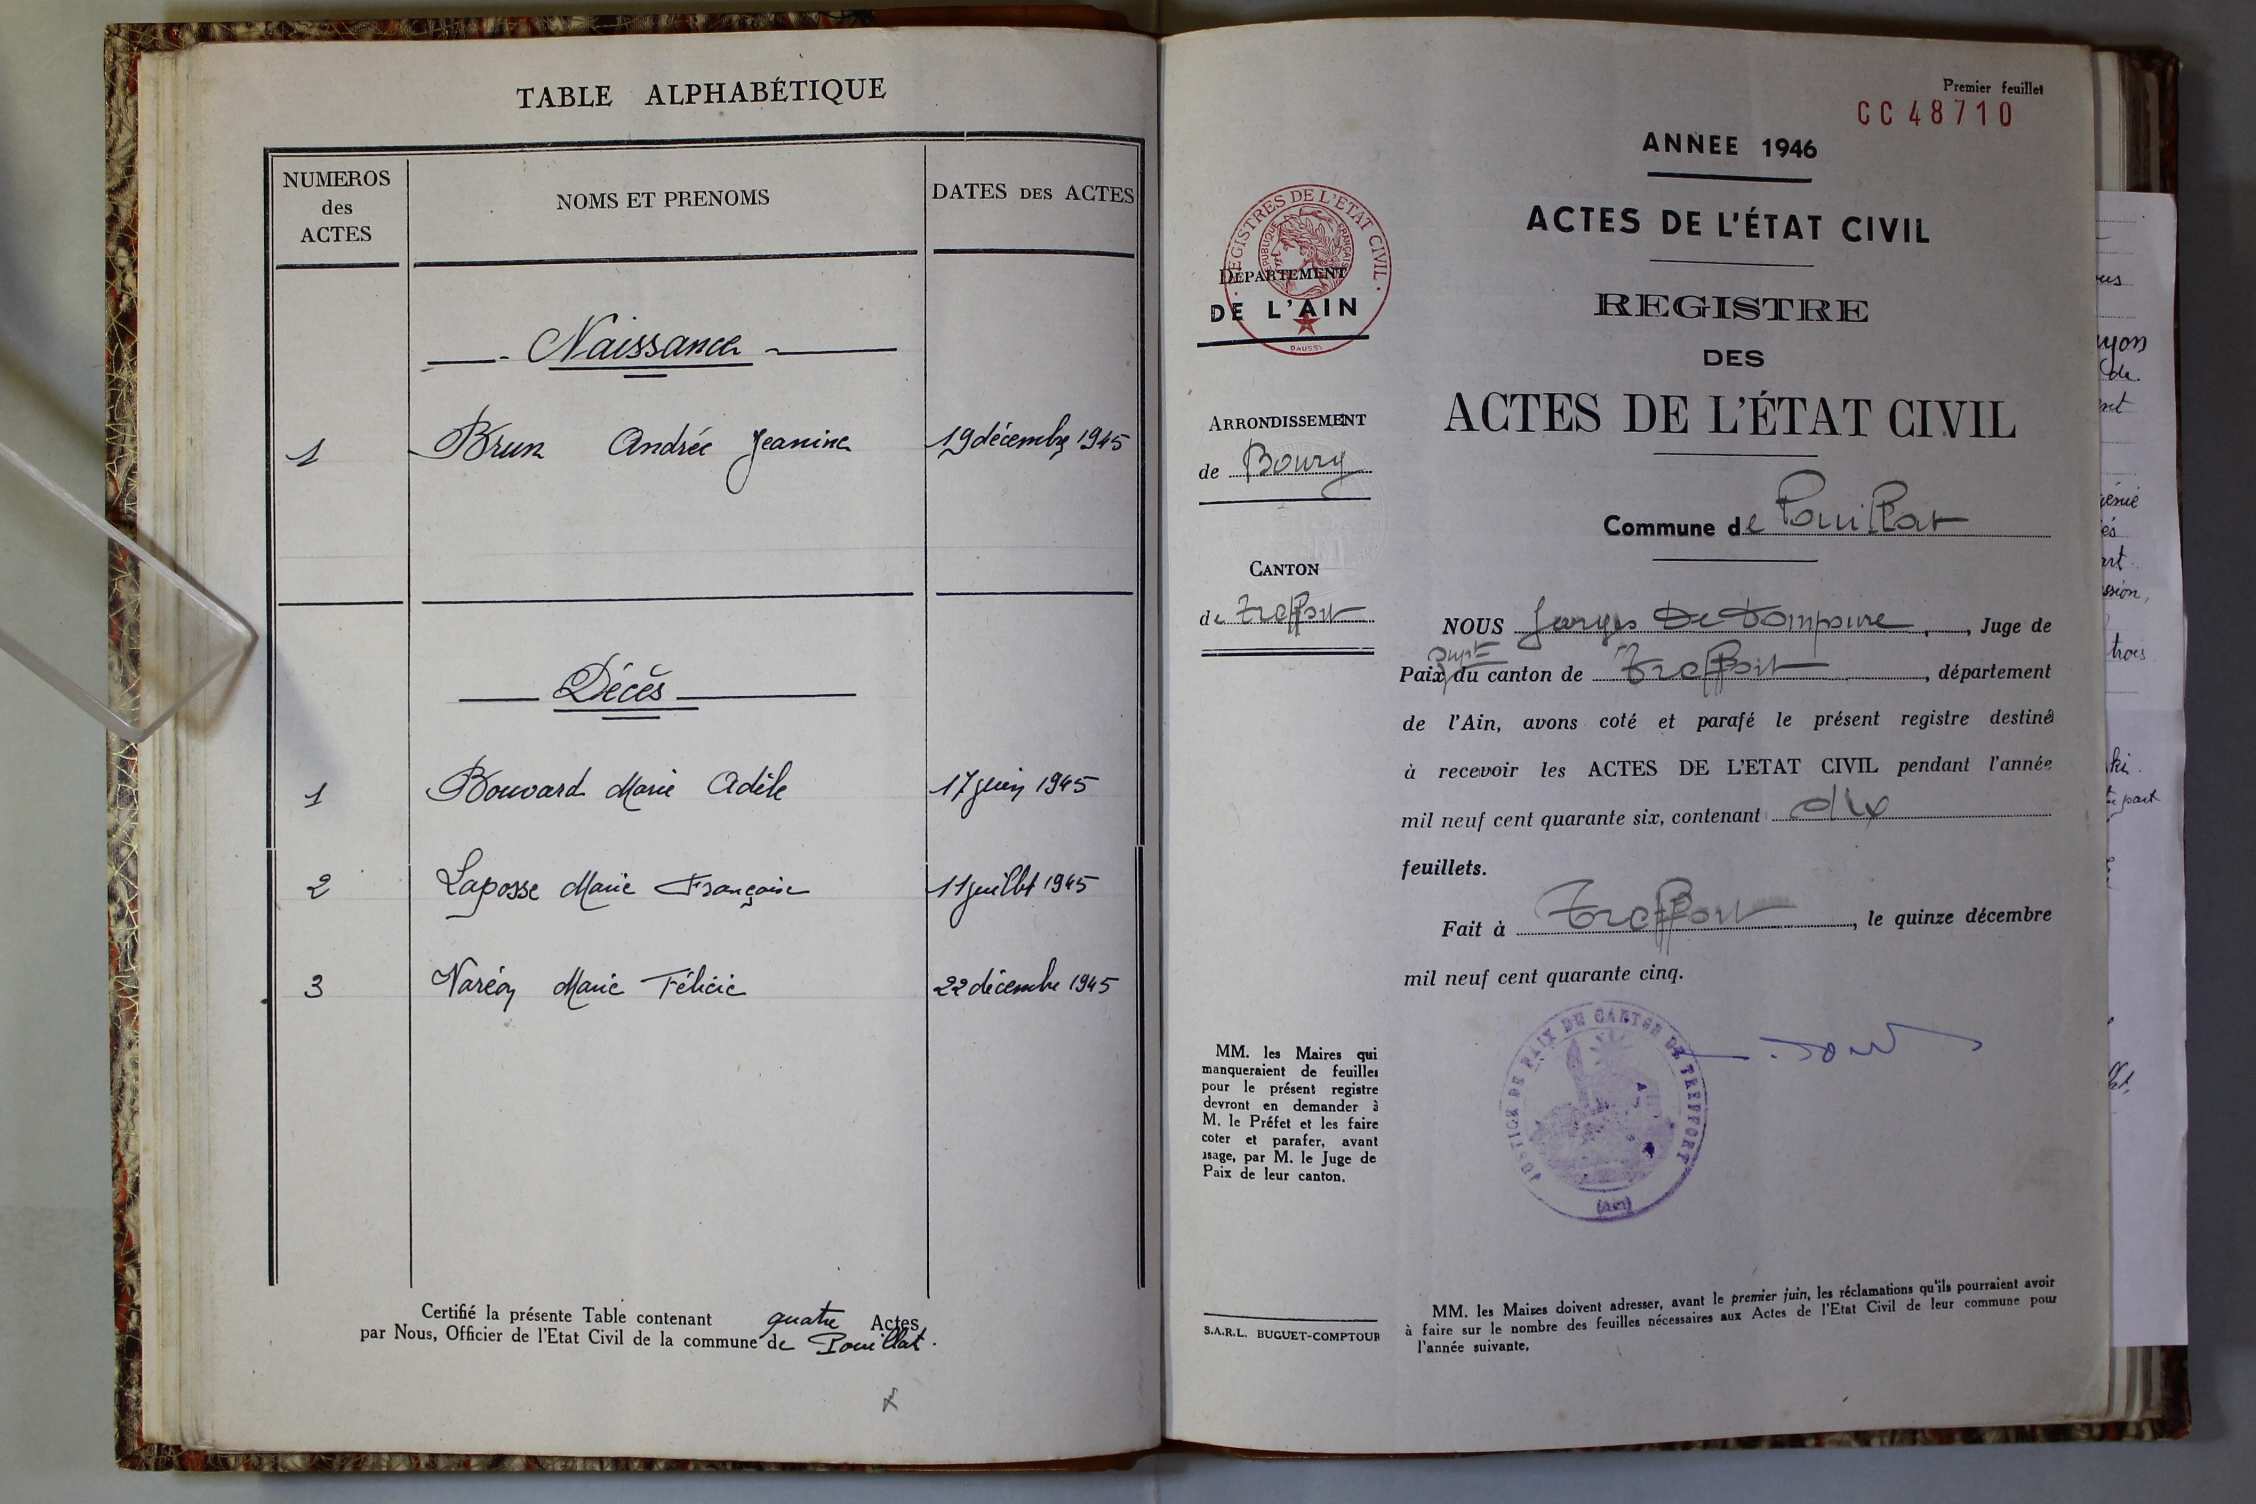 TABLE ALPHABÉTIQUE
NUMEROS
des
ACTES
NOMS ET PRENOMS
DATES DES ACTES
Naissance
1 Brun Andrée Jeanine 19 décembre 1945
Décès
1 Bouvard Marie Adèle 17 juin 1945
2 Laposse Marie Françoise 11 juillet 1945
3 Naréoy Marie Félicie 22 décembre 1945
Certifié la présente Table contenant quatre Actes
par Nous, Officier de l'Etat Civil de la commune de Pouillat.
Premier feuillet
CC 48710
ANNEE 1946
ACTES DE L'ÉTAT CIVIL
REGISTRES DE L'ETAT CIVIL
RÉPUBLIQUE FRANÇAISE
DÉPARTEMENT
DE L'AIN
REGISTRE
DES
ACTES DE L'ÉTAT CIVIL
ARRONDISSEMENT
de Bourg
Commune de Pouillat
CANTON
de Treffort
NOUS Georges De Dompsure, Juge de
Paix supt du canton de Treffort, département
de l'Ain, avons coté et parafé le présent registre destiné
à recevoir les ACTES DE L'ETAT CIVIL pendant l'année
mil neuf cent quarante six, contenant dix
feuillets.
Fait à Treffort, le quinze décembre
mil neuf cent quarante cinq.
JUSTICE DE PAIX DU CANTON DE TREFFORT
(Ain)
MM. les Maires qui
manqueraient de feuilles
pour le présent registre
devront en demander à
M. le Préfet et les faire
coter et parafer, avant
usage, par M. le Juge de
Paix de leur canton.
S.A.R.L. BUGUET-COMPTOUR
MM. les Maires doivent adresser, avant le premier juin, les réclamations qu'ils pourraient avoir
à faire sur le nombre des feuilles nécessaires aux Actes de l'Etat Civil de leur commune pour
l'année suivante.